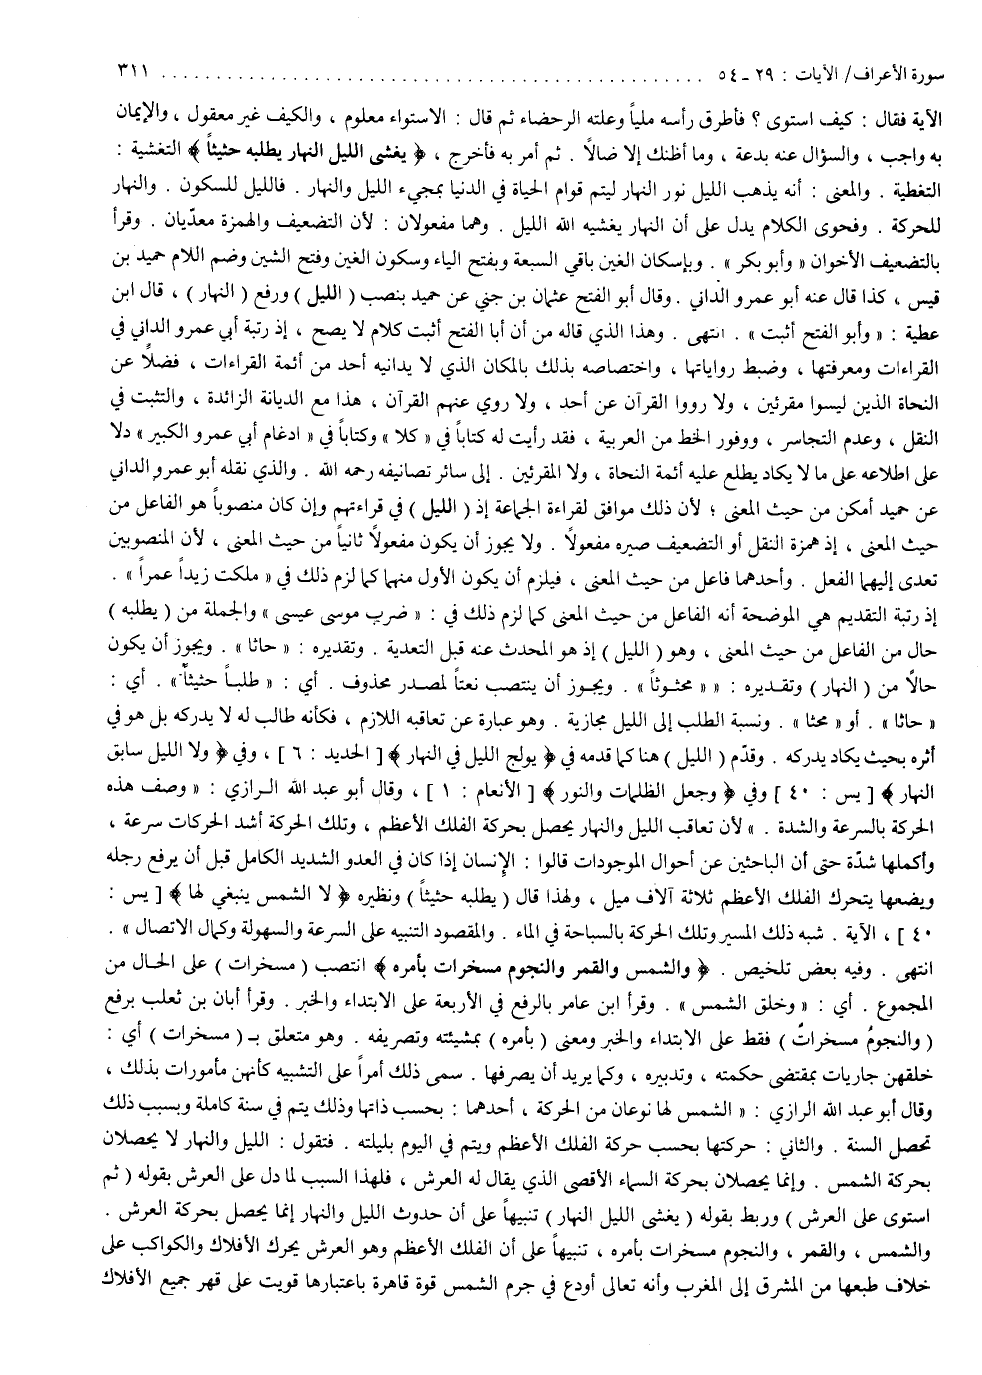 سورة الأعراف/ الآيات : ٢٩ ـ ٥٤ ............................................................ ٣١١
الآية فقال : كيف استوى ؟ فأطرق رأسه ملياً وعلته الرحضاء ثم قال : الاستواء معلوم ، والكيف غير معقول ، والإيمان
به واجب ، والسؤال عنه بدعة ، وما أظنك إلا ضالاً . ثم أمر به فأخرج ، ﴿ يغشى الليل النهار يطلبه حثيثاً ﴾ التغشية :
التغطية . والمعنى : أنه يذهب الليل نور النهار ليتم قوام الحياة في الدنيا بمجيء الليل والنهار . فالليل للسكون . والنهار
للحركة . وفحوى الكلام يدل على أن النهار يغشيه الله الليل . وهما مفعولان : لأن التضعيف والهمزة معدّيان . وقرأ
بالتضعيف الأخوان « وأبو بكر » . وبإسكان الغين باقي السبعة وبفتح الياء وسكون الغين وفتح الشين وضم اللام حميد بن
قيس ، كذا قال عنه أبو عمرو الداني . وقال أبو الفتح عثمان بن جني عن حميد بنصب ( الليل ) ورفع ( النهار ) ، قال ابن
عطية : « وأبو الفتح أثبت » . انتهى . وهذا الذي قاله من أن أبا الفتح أثبت كلام لا يصح ، إذ رتبة أبي عمرو الداني في
القراءات ومعرفتها ، وضبط رواياتها ، واختصاصه بذلك بالمكان الذي لا يدانيه أحد من أئمة القراءات ، فضلًا عن
النحاة الذين ليسوا مقرئين ، ولا رووا القرآن عن أحد ، ولا روي عنهم القرآن ، هذا مع الديانة الزائدة ، والتثبت في
النقل ، وعدم التجاسر ، ووفور الخط من العربية ، فقد رأيت له كتاباً في « كلا » وكتاباً في « ادغام أبي عمرو الكبير » دلا
على اطلاعه على ما لا يكاد يطلع عليه أئمة النحاة ، ولا المقرئين . إلى سائر تصانيفه رحمه الله . والذي نقله أبو عمرو الداني
عن حميد أمكن من حيث المعنى ؛ لأن ذلك موافق لقراءة الجماعة إذ ( الليل ) في قراءتهم وإن كان منصوباً هو الفاعل من
حيث المعنى ، إذ همزة النقل أو التضعيف صيره مفعولاً . ولا يجوز أن يكون مفعولاً ثانياً من حيث المعنى ، لأن المنصوبين
تعدى إليهما الفعل . وأحدهما فاعل من حيث المعنى ، فيلزم أن يكون الأول منهما كما لزم ذلك في « ملكت زيداً عمراً » .
إذ رتبة التقديم هي الموضحة أنه الفاعل من حيث المعنى كما لزم ذلك في : « ضرب موسى عيسى » والجملة من ( يطلبه )
حال من الفاعل من حيث المعنى ، وهو ( الليل ) إذ هو المحدث عنه قبل التعدية . وتقديره : « حاثا » . ويجوز أن يكون
حالاً من ( النهار ) وتقـديره : « « محثـوثاً » . ويجـوز أن ينتصب نعتاً لمصـدر محذوف . أي : « طلبـاً حثيثاً » . أي :
« حاثا » . أو « محثا » . ونسبة الطلب إلى الليل مجازية . وهو عبارة عن تعاقبه اللازم ، فكأنه طالب له لا يدركه بل هو في
أثره بحيث يكاد يدركه . وقدّم ( الليل ) هنا كما قدمه في ﴿ يولج الليل في النهار ﴾ [ الحديد : ٦ ] ، وفي ﴿ ولا الليل سابق
النهار ﴾ [ يس : ٤٠ ] وفي ﴿ وجعل الظلمات والنور ﴾ [ الأنعام : ١ ] ، وقال أبو عبد الله الـرازي : « وصف هذه
الحركة بالسرعة والشدة . » لأن تعاقب الليل والنهار يحصل بحركة الفلك الأعظم ، وتلك الحركة أشد الحركات سرعة ،
وأكملها شدّة حتى أن الباحثين عن أحوال الموجودات قالوا : الإنسان إذا كان في العدو الشديد الكامل قبل أن يرفع رجله
ويضعها يتحرك الفلك الأعظم ثلاثة آلاف ميل ، ولهذا قال ( يطلبه حثيثاً ) ونظيره ﴿ لا الشمس ينبغي لها ﴾ [ يس :
٤٠ ] ، الآية . شبه ذلك المسير وتلك الحركة بالسباحة في الماء . والمقصود التنبيه على السرعة والسهولة وكمال الاتصال » .
انتهى . وفيه بعض تلخيص . ﴿ والشمس والقمر والنجوم مسخرات بأمره ﴾ انتصب ( مسخرات ) على الحـال من
المجموع . أي : « وخلق الشمس » . وقرأ ابن عامر بالرفع في الأربعة على الابتداء والخبر . وقرأ أبان بن ثعلب برفع
( والنجومُ مسخراتٌ ) فقط على الابتداء والخبر ومعنى ( بأمره ) بمشيئته وتصريفه . وهو متعلق بـ ( مسخرات ) أي :
خلقهن جاريات بمقتضى حكمته ، وتدبيره ، وكما يريد أن يصرفها . سمى ذلك أمراً على التشبيه كأنهن مأمورات بذلك ،
وقال أبو عبد الله الرازي : « الشمس لها نوعان من الحركة ، أحدهما : بحسب ذاتها وذلك يتم في سنة كاملة وبسبب ذلك
تحصل السنة . والثاني : حركتها بحسب حركة الفلك الأعظم ويتم في اليوم بليلته . فتقول : الليل والنهار لا يحصلان
بحركة الشمس . وإنما يحصلان بحركة السماء الأقصى الذي يقال له العرش ، فلهذا السبب لما دل على العرش بقوله ( ثم
استوى على العرش ) وربط بقوله ( يغشى الليل النهار ) تنبيهاً على أن حدوث الليل والنهار إنما يحصل بحركة العرش .
والشمس ، والقمر ، والنجوم مسخرات بأمره ، تنبيهاً على أن الفلك الأعظم وهو العرش يحرك الأفلاك والكواكب على
خلاف طبعها من المشرق إلى المغرب وأنه تعالى أودع في جرم الشمس قوة قاهرة باعتبارها قويت على قهر جميع الأفلاك